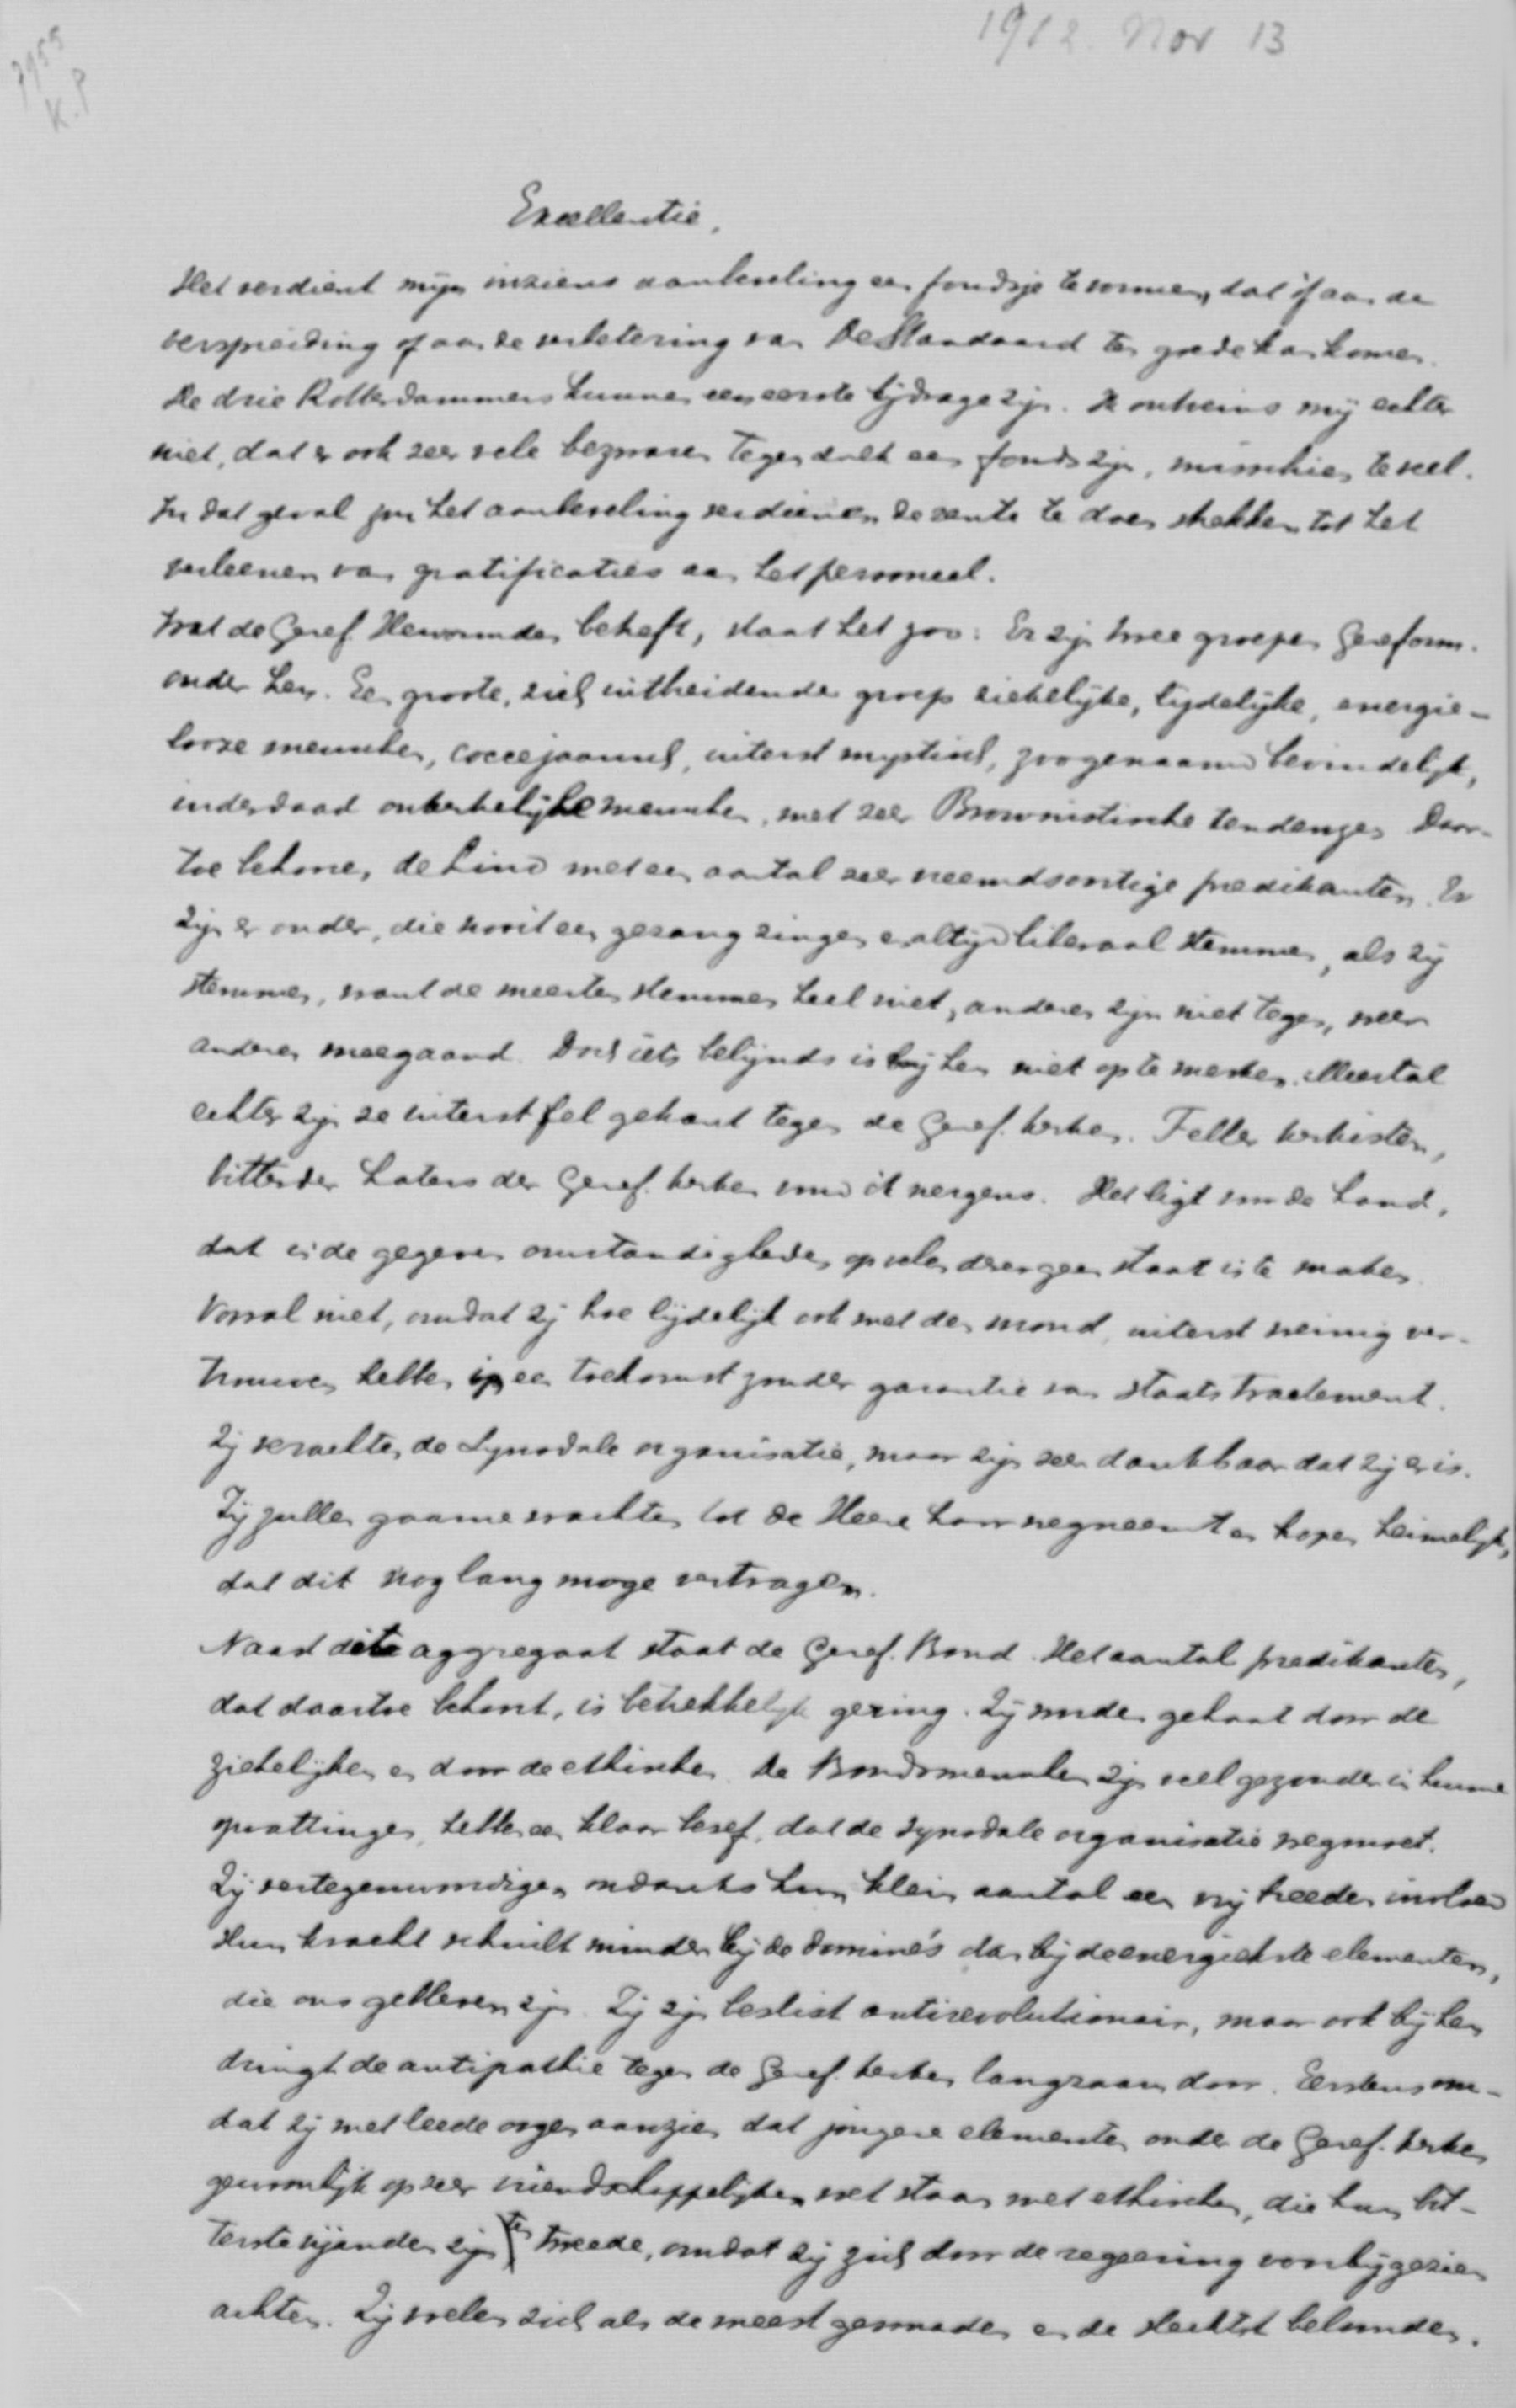 7955
K.P
1912. Nov 13
Excellentie,
Het verdient mijns inziens aanbeveling een fondsje te vormen, dat òf aan de
verspreiding of aan de verbetering van De Standaard ten goede kan komen.
De drie Rotterdammers kunnen een eerste bijdrage zijn. Ik ontveins mij echter
niet, dat er ook zeer vele bezwaren tegen zulk een fonds zijn, misschien te veel.
In dat geval zou het aanbeveling verdienen de rente te doen strekken tot het
verleenen van gratificaties aan het personeel.
Wat de Geref. Hervormden betreft, staat het zoo: Er zijn twee groepen Gereform.
onder hen. Een groote, zich uitbreidende groep ziekelijke, lijdelijke, energie-
looze menschen, coccejaansch, uiterst mystiek, zoogenaamd bevindelijk,
inderdaad onkerkelijke menschen, met zeer Brownistische tendenzen. Daar-
toe behooren de Lind met een aantal zeer vreemdsoortige predikanten. Er
zijn er onder, die nooit een gezang zingen en altijd liberaal stemmen, als zij
stemmen, want de meesten stemmen heel niet, anderen zijn niet tegen, weer
anderen meegaand. Doch iets belijnds is bij hen niet op te merken. Meestal
echter zijn ze uiterst fel gekant tegen de Geref. kerken. Feller kerkisten,
bitterder haters der Geref. kerken vind ik nergens. Het ligt voor de hand,
dat in de gegeven omstandigheden op velen dezer geen staat is te maken.
Vooral niet, omdat zij hoe lijdelijk ook met den mond, uiterst weinig ver-
trouwen hebben in een toekomst zonder garantie van staatstractement.
Zij verachten de Synodale organisatie, maar zijn zeer dankbaar dat zij er is.
Zij zullen gaarne wachten tot de Heere haar wegneemt en hopen heimelijk,
dat dit nog lang moge vertragen.
Naast dit aggregaat staat de Geref. Bond. Het aantal predikanten,
dat daartoe behoort, is betrekkelijk gering. Zij worden gehaat door de
ziekelijken en door de ethischen. De Bondsmenschen zijn veel gezonder in hunne
opvattingen, hebben een klaar besef, dat de synodale organisatie weg moet.
Zij vertegenwoordigen ondanks hun klein aantal een vrij breeden invloed.
Hun kracht schuilt minder bij de dominé's dan bij de energiekste elementen,
die ons gebleven zijn. Zij zijn beslist antirevolutionair, maar ook bij hen
dringt de antipathie tegen de Geref. kerken langzaam door. Eerstens om-
dat zij met leede oogen aanzien dat jongere elementen onder de Geref. kerken
gewoonlijk op zeer vriendschappelijken voet staan met ethischen, die hun bit-
terste vijanden zijn ten tweede, omdat zij zich door de regeering voorbijgezien
achten. Zij voelen zich als de meest gesmaden en de slechtst beloonden.